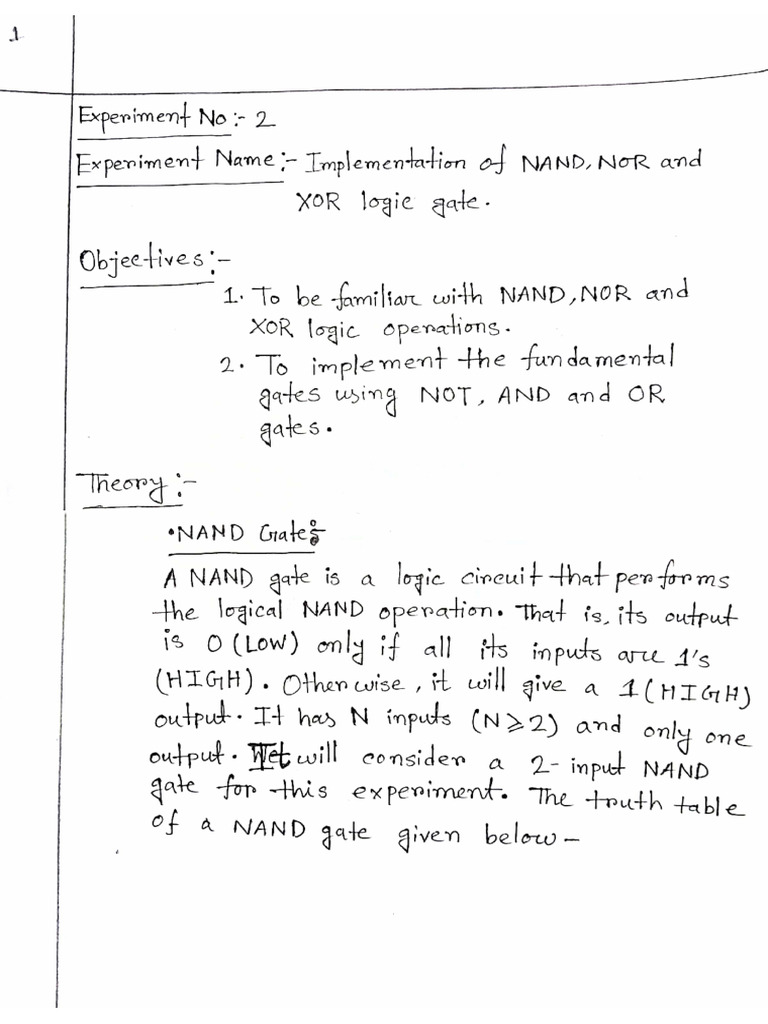 1
Experiment No:- 2
Experiment Name:- Implementation of NAND, NOR and
XOR logic gate.
Objectives:-
1. To be familiar with NAND, NOR and
XOR logic operations.
2. To implement the fundamental
gates using NOT, AND and OR
gates.
Theory:-
•NAND Gate:-
A NAND gate is a logic circuit that performs
the logical NAND operation. That is, its output
is 0 (LOW) only if all its inputs are 1's
(HIGH). Otherwise, it will give a 1 (HIGH)
output. It has N inputs (N⩾2) and only one
output. will consider a 2-input NAND
gate for this experiment. The truth table
of a NAND gate given below-